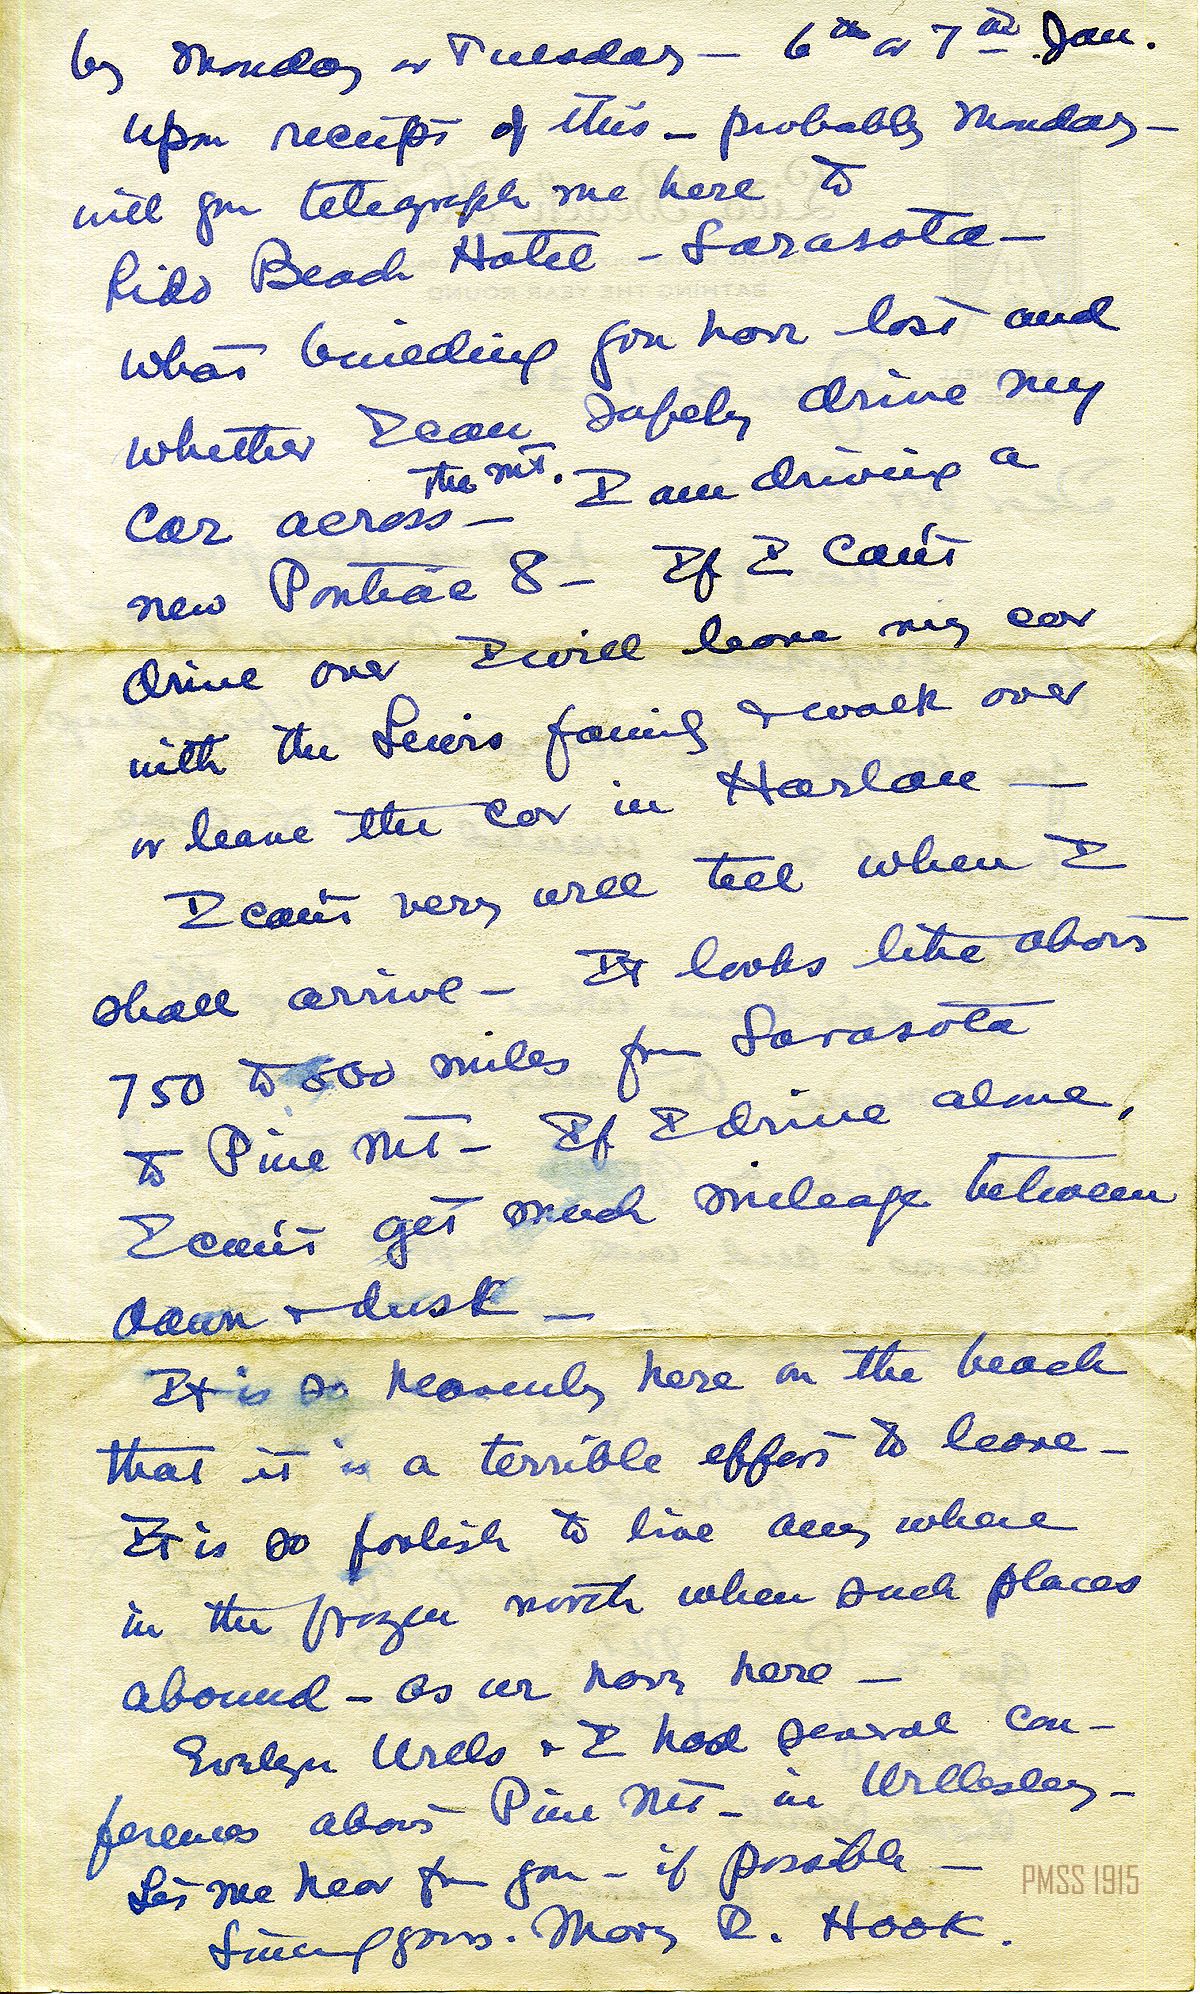 by Monday or Tuesday — 6th or 7th Jan.
Upon receipt of this — probably Monday —
will you telegraph me here to
Lido Beach Hotel — Sarasota —
what building you have lost and
whether I can safely drive my
car across — the Mt. I am driving a
new Pontiac 8 — If I can't
drive over I will leave my car
with the Lewis family & walk over
or leave the car in Harlan —
I can't very well tell when I
shall arrive — It looks like about
750 to 800 miles from Sarasota
to Pine Mt — If I drive alone,
I can't get much mileage between
dawn & dusk —
It is so heavenly here on the beach
that it is a terrible effort to leave —
It is so foolish to live any where
in the frozen north when such places
abound — as we have here —
Evelyn Wells & I had several con-
ferences about Pine Mt — in Wellesley —
Let me hear from you — if possible —
Sincerely yours. Mary R. Hook.
PMSS 1915
BATHING THE YEAR ROUND